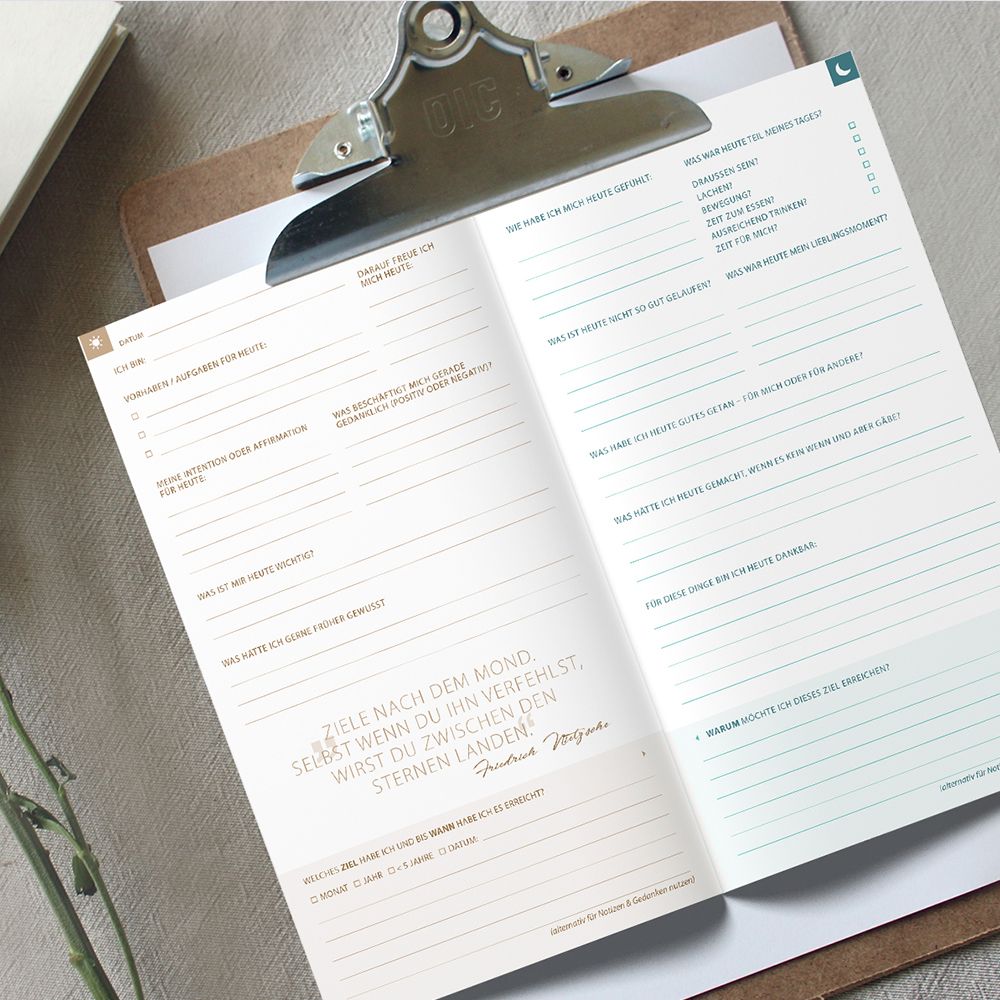 OIC
DATUM
ICH BIN:
VORHABEN / AUFGABEN FÜR HEUTE:
DARAUF FREUE ICH
MICH HEUTE:
MEINE INTENTION ODER AFFIRMATION
FÜR HEUTE:
WAS BESCHÄFTIGT MICH GERADE
GEDANKLICH (POSITIV ODER NEGATIV)?
WAS IST MIR HEUTE WICHTIG?
WAS HÄTTE ICH GERNE FRÜHER GEWUSST
„ZIELE NACH DEM MOND.
SELBST WENN DU IHN VERFEHLST,
WIRST DU ZWISCHEN DEN
STERNEN LANDEN.“
Friedrich Nietzsche
WELCHES ZIEL HABE ICH UND BIS WANN HABE ICH ES ERREICHT?
☐ MONAT ☐ JAHR ☐ < 5 JAHRE ☐ DATUM:
(alternativ für Notizen & Gedanken nutzen)
WIE HABE ICH MICH HEUTE GEFÜHLT:
WAS WAR HEUTE TEIL MEINES TAGES?
DRAUSSEN SEIN?
LACHEN?
BEWEGUNG?
ZEIT ZUM ESSEN?
AUSREICHEND TRINKEN?
ZEIT FÜR MICH?
WAS IST HEUTE NICHT SO GUT GELAUFEN?
WAS WAR HEUTE MEIN LIEBLINGSMOMENT?
WAS HABE ICH HEUTE GUTES GETAN – FÜR MICH ODER FÜR ANDERE?
WAS HÄTTE ICH HEUTE GEMACHT, WENN ES KEIN WENN UND ABER GÄBE?
FÜR DIESE DINGE BIN ICH HEUTE DANKBAR:
WARUM MÖCHTE ICH DIESES ZIEL ERREICHEN?
(alternativ für